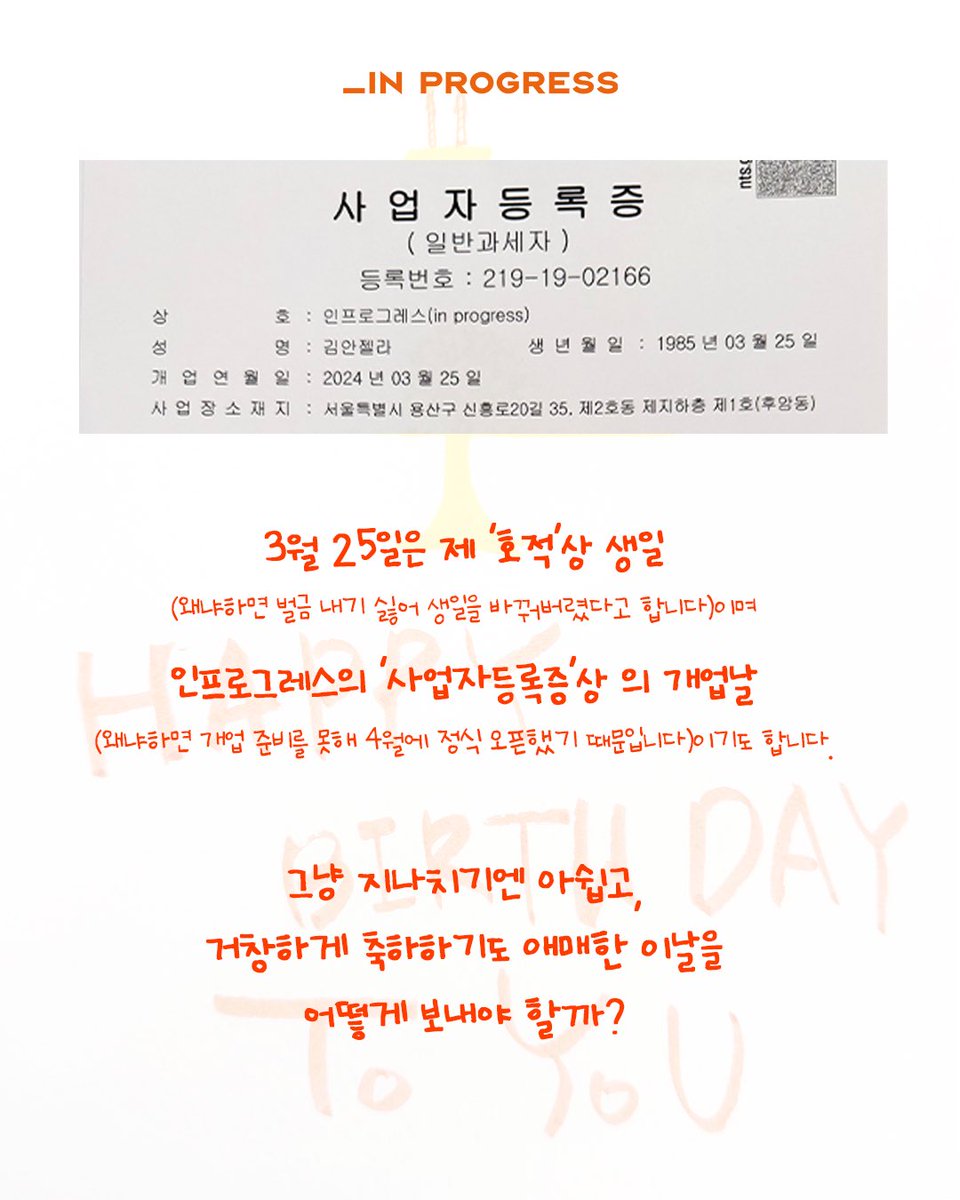 _IN PROGRESS
nts.g
사업자등록증
( 일반과세자 )
등록번호 : 219-19-02166
상 호 : 인프로그레스(in progress)
성 명 : 김안젤라 생 년 월 일 : 1985 년 03 월 25 일
개 업 연 월 일 : 2024 년 03 월 25 일
사 업 장 소 재 지 : 서울특별시 용산구 신흥로20길 35, 제2호동 제지하층 제1호(후암동)
3월 25일은 제 '호적'상 생일
(왜냐하면 벌금 내기 싫어 생일을 바꿔버렸다고 합니다)이며
HAPPY
인프로그레스의 '사업자등록증'상 의 개업날
(왜냐하면 개업 준비를 못해 4월에 정식 오픈했기 때문입니다)이기도 합니다.
BIRTH DAY
그냥 지나치기엔 아쉽고,
거창하게 축하하기도 애매한 이날을
TO YOU
어떻게 보내야 할까?